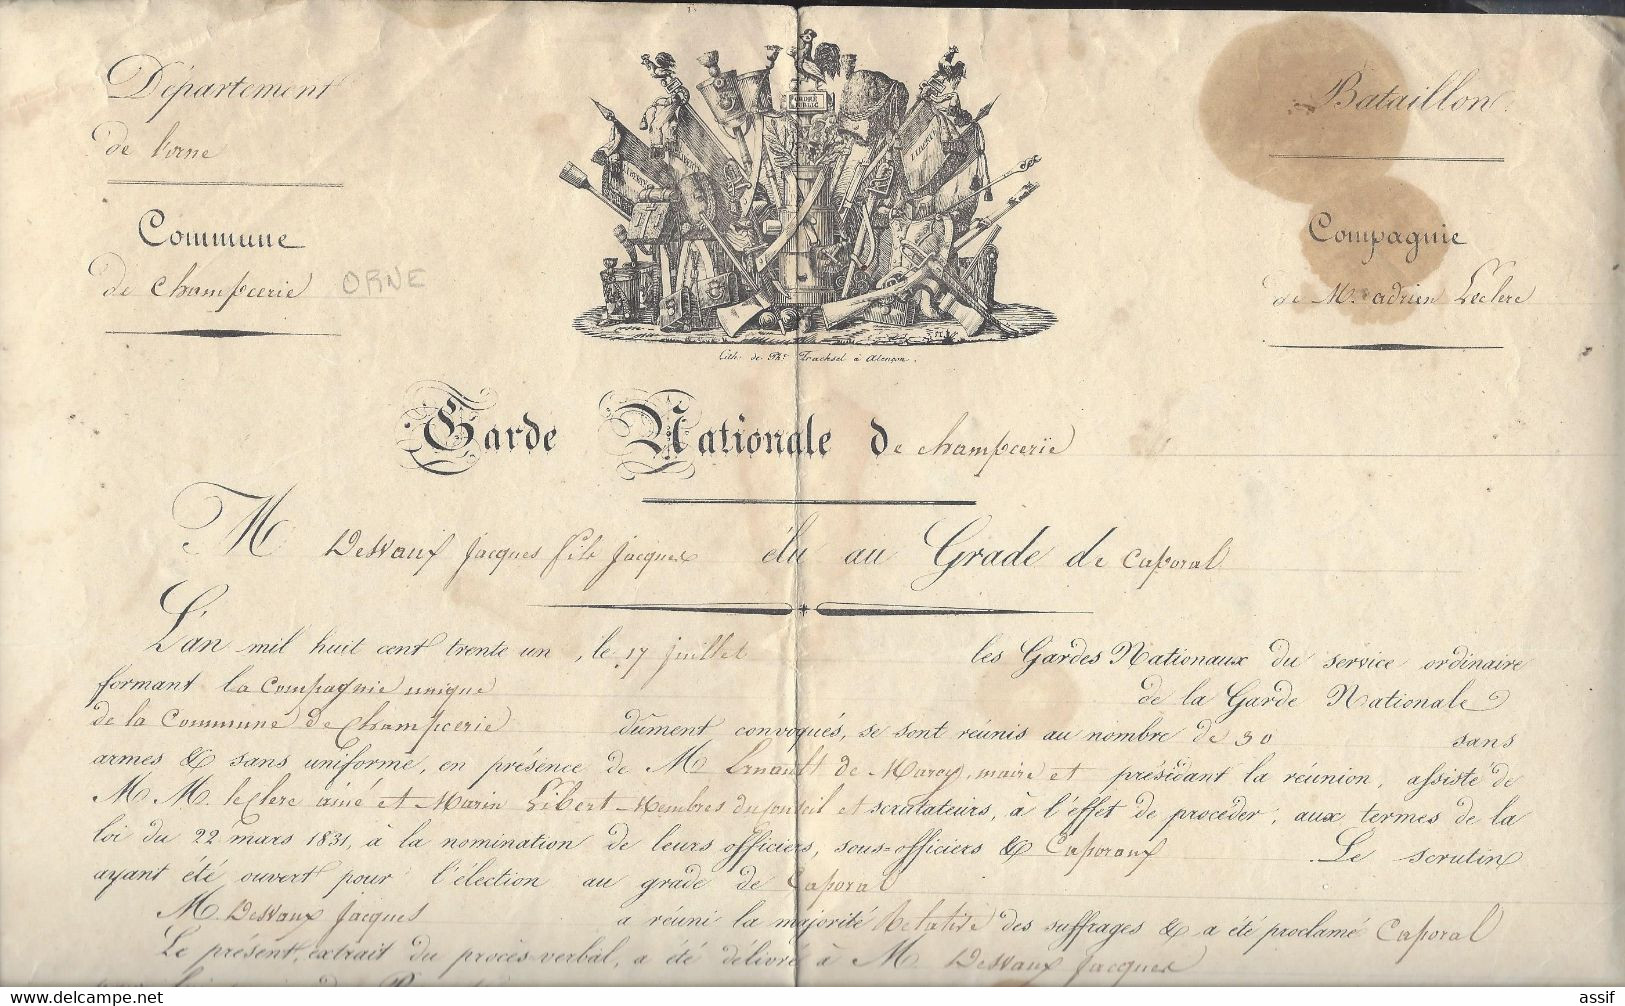 Département
de l'orne
Commune
de Champcerie ORNE
ORDRE PUBLIC
LIBERTÉ
Lith. de Ph. Trachsel à Alençon.
Bataillon
Compagnie
de M. adrien Leclerc
Garde Nationale de champcerie
M Desvaux Jacques fils Jacques élu au Grade de Caporal
L'an mil huit cent trente un, le 17 juillet les Gardes Nationaux du service ordinaire
formant la Compagnie unique de la Garde Nationale
de la Commune de Champcerie dûment convoqués, se sont réunis au nombre de 30 sans
armes & sans uniforme, en présence de M Ernault de Marcy, maire et présidant la réunion, assisté de
M M. leclerc ainé et Marin Libert Membres du Conseil et scrutateurs, à l'effet de procéder, aux termes de la
loi du 22 mars 1831, à la nomination de leurs officiers, sous-officiers & Caporaux Le scrutin
ayant été ouvert pour l'élection au grade de Caporal
M. Desvaux Jacques a réuni la majorité Relative des suffrages & a été proclamé Caporal
Le présent, extrait du procès-verbal, a été délivré à M. Desvaux Jacques
www.delcampe.net
assif